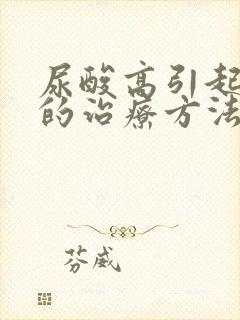 尿酸高引起
的治疗方法
芬威